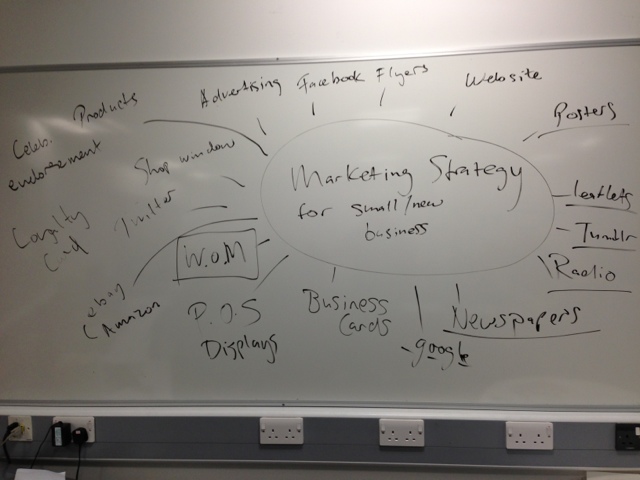 Advertising
Facebook
Flyers
Website
Products
Posters
Celeb.
endorsement
Shop window
Marketing Strategy
for small/new
business
Leaflets
Loyalty
Card
Twitter
Tumblr
W.O.M
Radio
ebay
Amazon
P.O.S
Displays
Business
Cards
Newspapers
-google